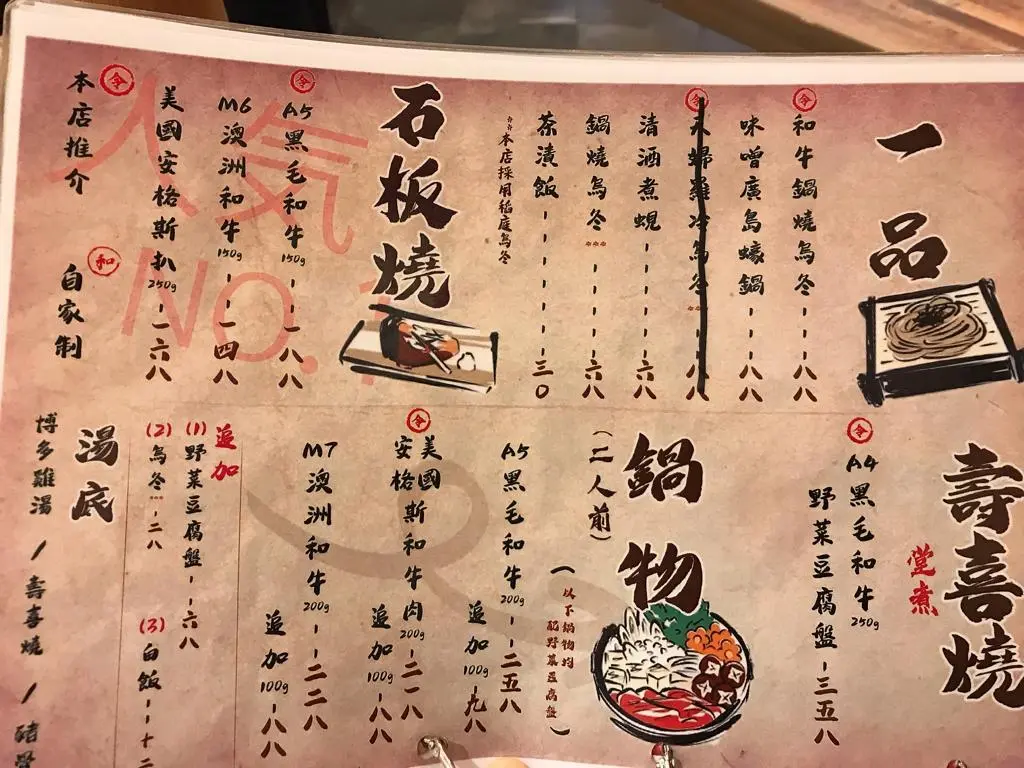 一品
和牛鍋燒烏冬---八八
味噌廣島蠔鍋---八八
清酒煮蜆------六八
鍋燒烏冬***-----六八
茶漬飯--------三〇
**本店採用稻庭烏冬
石板燒
A5黑毛和牛150g--一八八
M6澳洲和牛150g--一四八
美國安格斯扒250g-一六八
令 本店推介
和 自家制
人気NO.1
壽喜燒
堂煮
A4黑毛和牛250g
野菜豆腐盤-三五八
鍋物
(二人前)
(以下鍋物均配野菜豆腐盤)
A5黑毛和牛200g--二五八
追加100g-九八
美國安格斯和牛肉200g-二一八
追加100g-八八
M7澳洲和牛200g--二二八
追加100g-八八
追加
(1)野菜豆腐盤--六八
(2)烏冬***--二八
(3)白飯---十二
湯底
博多雞湯/壽喜燒/豬骨